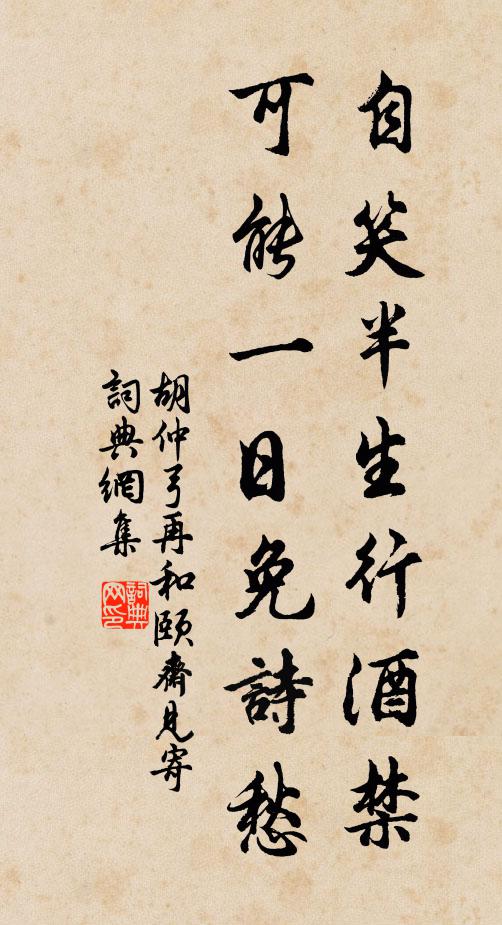 自笑半生行酒禁
可能一日免詩愁
胡仲弓再和頤齋見寄
詞典網集
詞典網印